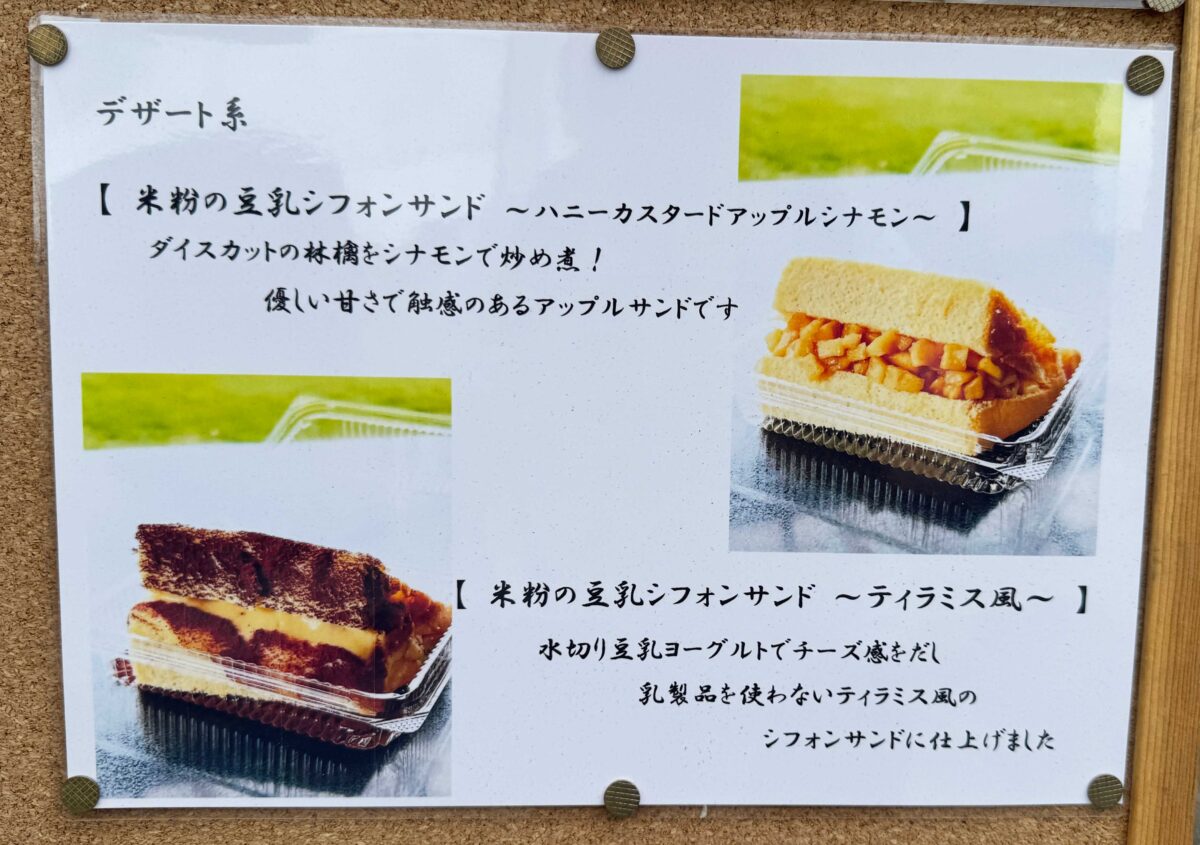 デザート系
【 米粉の豆乳シフォンサンド ～ハニーカスタードアップルシナモン～ 】
ダイスカットの林檎をシナモンで炒め煮！
優しい甘さで触感のあるアップルサンドです
【 米粉の豆乳シフォンサンド ～ティラミス風～ 】
水切り豆乳ヨーグルトでチーズ感をだし
乳製品を使わないティラミス風の
シフォンサンドに仕上げました